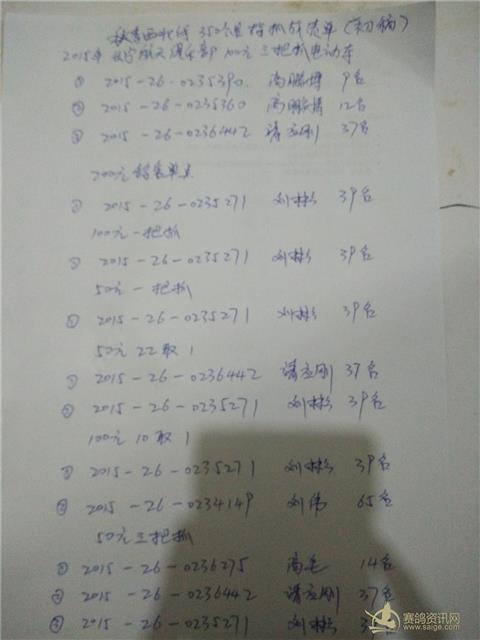 秋季西北线350公里指抓成绩单(初稿)
2015年 长空航天俱乐部 100元三把抓电动车
① 2015-26-0235390 高鹏博 9名
② 2015-26-0235360 高鹏博 12名
③ 2015-26-0236442 谭立刚 37名
200元 单点
① 2015-26-0235271 刘彬 39名
100元 一把抓
① 2015-26-0235271 刘彬 39名
50元 一把抓
① 2015-26-0235271 刘彬 39名
50元 22取1
① 2015-26-0236442 谭立刚 37名
② 2015-26-0235271 刘彬 39名
100元 10取1
① 2015-26-0235271 刘彬 39名
② 2015-26-0234149 刘伟 65名
50元三把抓
① 2015-26-0236275 高 14名
② 2015-26-0236442 谭立刚 37名
③ 2015-26-0235271 刘彬
赛鸽资讯网
www.saige.com